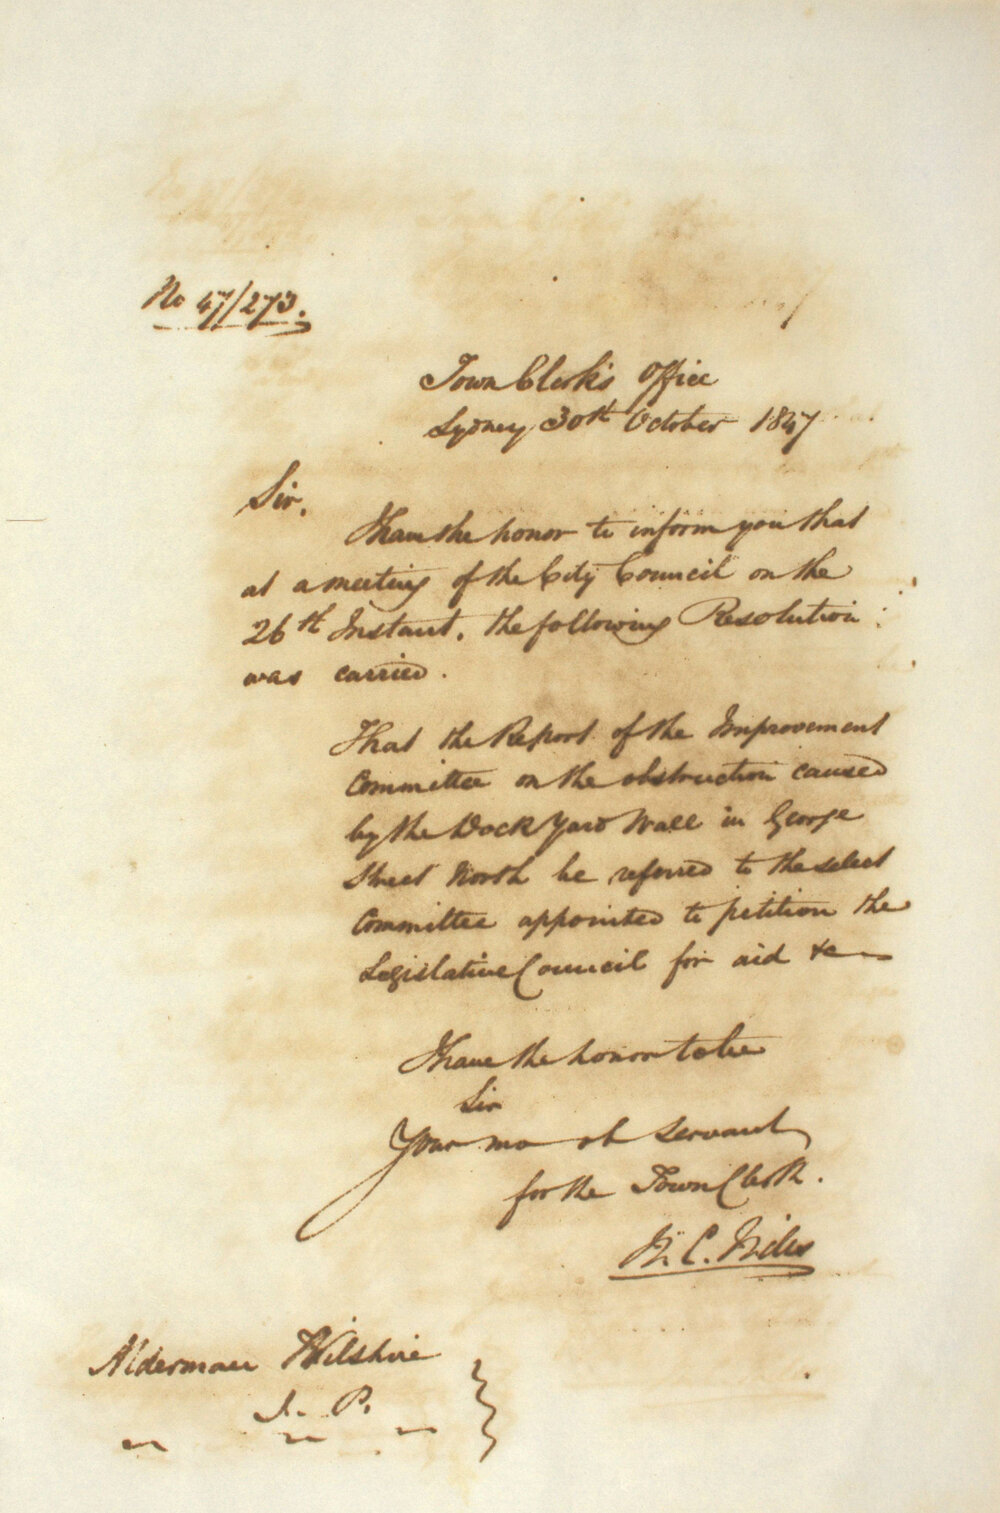 No 47/273.
Town Clerk's Office
Sydney 30th October 1847
Sir,
I have the honor to inform you that
at a meeting of the City Council on the
26th Instant, the following Resolution
was carried.
That the Report of the Improvement
Committee on the obstruction caused
by the Dock Yard Wall in George
Street North be referred to the select
Committee appointed to petition the
Legislative Council for aid &c
I have the honor to be
Sir
Your mo ob servant
for the Town Clerk.
C.
Alderman Wilshire
J. P.